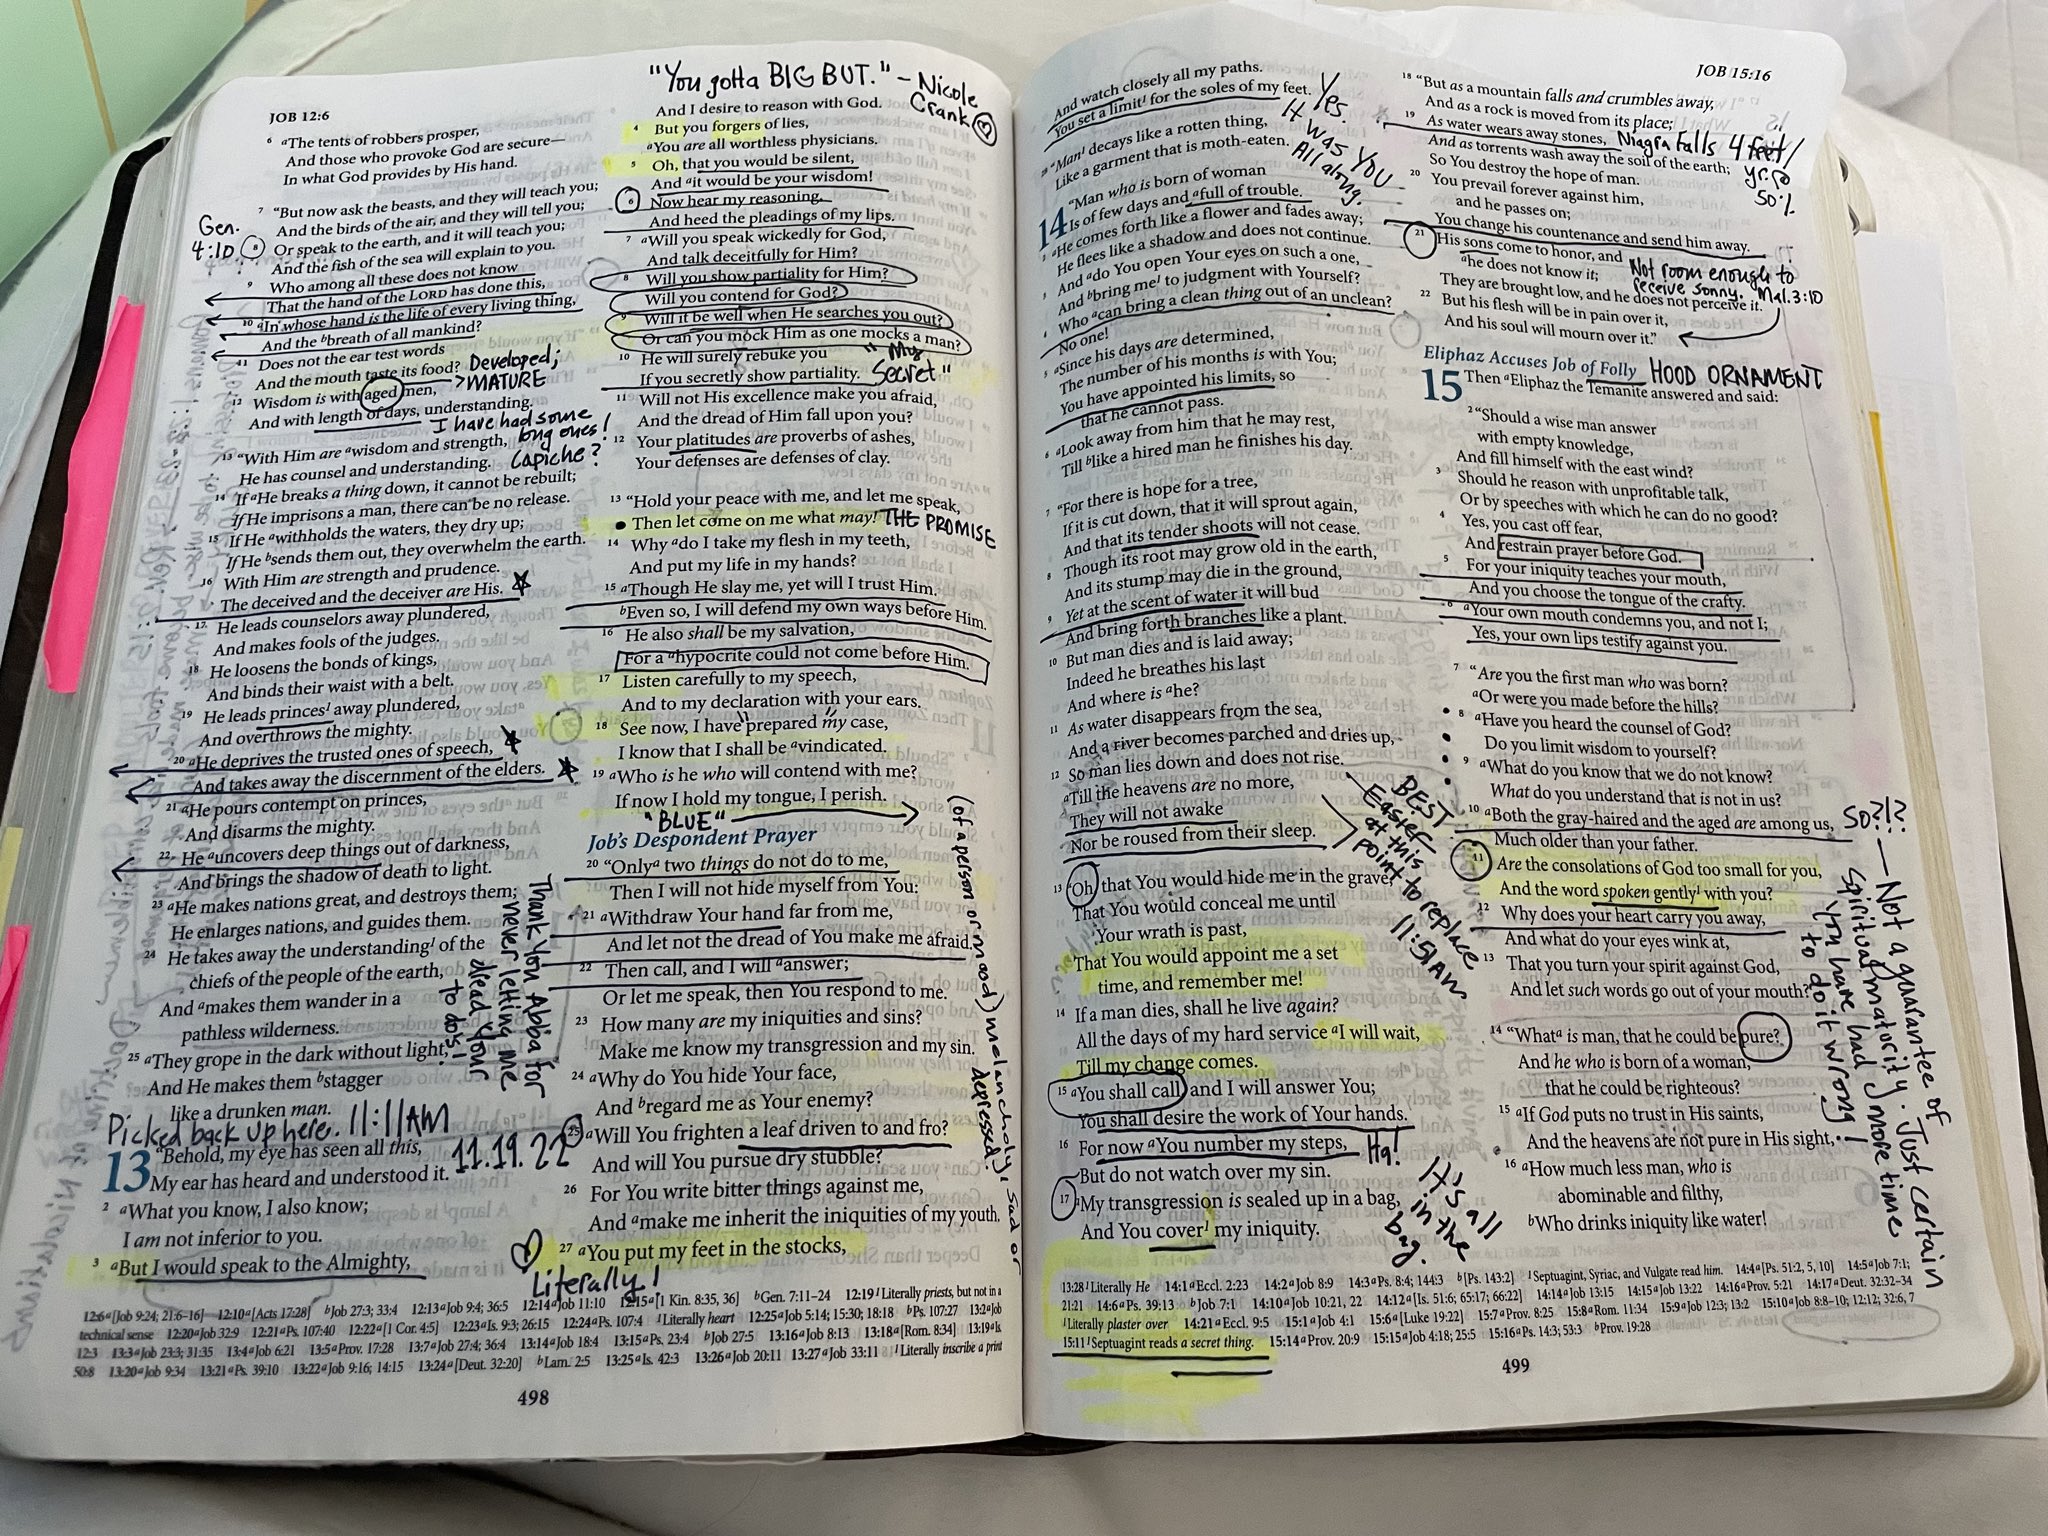 JOB 12:6
6 aThe tents of robbers prosper,
And those who provoke God are secure—
In what God provides by His hand.
7 “But now ask the beasts, and they will teach you;
And the birds of the air, and they will tell you;
Gen.
4:10
8 Or speak to the earth, and it will teach you;
And the fish of the sea will explain to you.
9 Who among all these does not know
That the hand of the LORD has done this,
10 aIn whose hand is the life of every living thing,
And the bbreath of all mankind?
11 Does not the ear test words
And the mouth taste its food?
Developed;
>MATURE
12 Wisdom is with aged men,
And with length of days, understanding.
I have had some
long ones!
Capiche?
13 “With Him are awisdom and strength,
He has counsel and understanding.
14 If aHe breaks a thing down, it cannot be rebuilt;
If He imprisons a man, there can be no release.
15 If He awithholds the waters, they dry up;
If He bsends them out, they overwhelm the earth.
16 With Him are strength and prudence.
The deceived and the deceiver are His.
17 He leads counselors away plundered,
And makes fools of the judges.
18 He loosens the bonds of kings,
And binds their waist with a belt.
19 He leads princes1 away plundered,
And overthrows the mighty.
20 aHe deprives the trusted ones of speech,
And takes away the discernment of the elders.
21 aHe pours contempt on princes,
And disarms the mighty.
22 He auncovers deep things out of darkness,
And brings the shadow of death to light.
23 aHe makes nations great, and destroys them;
He enlarges nations, and guides them.
24 He takes away the understanding1 of the
chiefs of the people of the earth,
And amakes them wander in a
pathless wilderness.
25 aThey grope in the dark without light,
And He makes them bstagger
like a drunken man.
Thank You Abba for
never letting me
dead Your
to dos!
Picked back up here. 11:11AM
11.19.22
13 “Behold, my eye has seen all this,
My ear has heard and understood it.
2 aWhat you know, I also know;
I am not inferior to you.
3 aBut I would speak to the Almighty,
"You gotta BIG BUT." – Nicole
Crank
And I desire to reason with God.
4 But you forgers of lies,
aYou are all worthless physicians.
5 Oh, that you would be silent,
And ait would be your wisdom!
6 Now hear my reasoning,
And heed the pleadings of my lips.
7 aWill you speak wickedly for God,
And talk deceitfully for Him?
8 Will you show partiality for Him?
Will you contend for God?
9 Will it be well when He searches you out?
Or can you mock Him as one mocks a man?
10 He will surely rebuke you
If you secretly show partiality.
"My
Secret"
11 Will not His excellence make you afraid,
And the dread of Him fall upon you?
12 Your platitudes are proverbs of ashes,
Your defenses are defenses of clay.
13 “Hold your peace with me, and let me speak,
Then let come on me what may! THE PROMISE
14 Why ado I take my flesh in my teeth,
And put my life in my hands?
15 aThough He slay me, yet will I trust Him.
bEven so, I will defend my own ways before Him.
16 He also shall be my salvation,
For a ahypocrite could not come before Him.
17 Listen carefully to my speech,
And to my declaration with your ears.
18 See now, I have prepared my case,
I know that I shall be avindicated.
19 aWho is he who will contend with me?
If now I hold my tongue, I perish.
"BLUE"
(of a person or mood) melancholy, sad or
depressed.
Job’s Despondent Prayer
20 “Onlya two things do not do to me,
Then I will not hide myself from You:
21 aWithdraw Your hand far from me,
And let not the dread of You make me afraid.
22 Then call, and I will aanswer;
Or let me speak, then You respond to me.
23 How many are my iniquities and sins?
Make me know my transgression and my sin.
24 aWhy do You hide Your face,
And bregard me as Your enemy?
25 aWill You frighten a leaf driven to and fro?
And will You pursue dry stubble?
26 For You write bitter things against me,
And amake me inherit the iniquities of my youth.
27 aYou put my feet in the stocks,
Literally!
12:6 a[Job 9:24; 21:6–16] 12:10 a[Acts 17:28] bJob 27:3; 33:4 12:13 aJob 9:4; 36:5 12:14 aJob 11:10 12:15 a[1 Kin. 8:35, 36] bGen. 7:11–24 12:19 1Literally priests, but not in a
technical sense 12:20 aJob 32:9 12:21 aPs. 107:40 12:22 a[1 Cor. 4:5] 12:23 aIs. 9:3; 26:15 12:24 aPs. 107:4 1Literally heart 12:25 aJob 5:14; 15:30; 18:18 bPs. 107:27 13:2 aJob
12:3 13:3 aJob 23:3; 31:35 13:4 aJob 6:21 13:5 aProv. 17:28 13:7 aJob 27:4; 36:4 13:14 aJob 18:4 13:15 aPs. 23:4 bJob 27:5 13:16 aJob 8:13 13:18 a[Rom. 8:34] 13:19 aIs.
50:8 13:20 aJob 9:34 13:21 aPs. 39:10 13:22 aJob 9:16; 14:15 13:24 a[Deut. 32:20] bLam. 2:5 13:25 aIs. 42:3 13:26 aJob 20:11 13:27 aJob 33:11 1Literally inscribe a print
498
JOB 15:16
And watch closely all my paths.
You set a limit1 for the soles of my feet.
Yes.
It was YOU
All along.
28 “Man1 decays like a rotten thing,
Like a garment that is moth-eaten.
14 “Man who is born of woman
Is of few days and afull of trouble.
2 aHe comes forth like a flower and fades away;
He flees like a shadow and does not continue.
3 And ado You open Your eyes on such a one,
And bbring me1 to judgment with Yourself?
4 Who acan bring a clean thing out of an unclean?
No one!
5 aSince his days are determined,
The number of his months is with You;
You have appointed his limits, so
that he cannot pass.
6 aLook away from him that he may rest,
Till blike a hired man he finishes his day.
7 “For there is hope for a tree,
If it is cut down, that it will sprout again,
And that its tender shoots will not cease.
8 Though its root may grow old in the earth,
And its stump may die in the ground,
9 Yet at the scent of water it will bud
And bring forth branches like a plant.
10 But man dies and is laid away;
Indeed he breathes his last
And where is ahe?
11 As water disappears from the sea,
And a river becomes parched and dries up,
12 So man lies down and does not rise.
aTill the heavens are no more,
They will not awake
Nor be roused from their sleep.
BEST
Easter
at this
point to replace
11:51AM
13 Oh, that You would hide me in the grave,
That You would conceal me until
Your wrath is past,
That You would appoint me a set
time, and remember me!
14 If a man dies, shall he live again?
All the days of my hard service aI will wait,
Till my change comes.
15 aYou shall call, and I will answer You;
You shall desire the work of Your hands.
16 For now aYou number my steps, Ha!
But do not watch over my sin.
17 aMy transgression is sealed up in a bag,
And You cover1 my iniquity.
It's all
in the
bag.
18 “But as a mountain falls and crumbles away,
And as a rock is moved from its place;
19 As water wears away stones,
Niagra Falls 4 feet/
yr. @
50%
And as torrents wash away the soil of the earth;
So You destroy the hope of man.
20 You prevail forever against him,
and he passes on;
You change his countenance and send him away.
21 His sons come to honor, and
ahe does not know it;
Not room enough to
receive sonny. Mal. 3:10
They are brought low, and he does not perceive it.
22 But his flesh will be in pain over it,
And his soul will mourn over it.”
Eliphaz Accuses Job of Folly HOOD ORNAMENT
15 Then aEliphaz the Temanite answered and said:
2 “Should a wise man answer
with empty knowledge,
And fill himself with the east wind?
3 Should he reason with unprofitable talk,
Or by speeches with which he can do no good?
4 Yes, you cast off fear,
And restrain prayer before God.
5 For your iniquity teaches your mouth,
And you choose the tongue of the crafty.
6 aYour own mouth condemns you, and not I;
Yes, your own lips testify against you.
7 “Are you the first man who was born?
aOr were you made before the hills?
8 aHave you heard the counsel of God?
Do you limit wisdom to yourself?
9 aWhat do you know that we do not know?
What do you understand that is not in us?
10 aBoth the gray-haired and the aged are among us,
Much older than your father.
SO?!?
— Not a guarantee of
Spiritual maturity. Just certain
you have had more time
to do it wrong!
11 Are the consolations of God too small for you,
And the word spoken gently1 with you?
12 Why does your heart carry you away,
And what do your eyes wink at,
13 That you turn your spirit against God,
And let such words go out of your mouth?
14 “Whata is man, that he could be pure?
And he who is born of a woman,
that he could be righteous?
15 aIf God puts no trust in His saints,
And the heavens are not pure in His sight,
16 aHow much less man, who is
abominable and filthy,
bWho drinks iniquity like water!
13:28 1Literally He 14:1 aEccl. 2:23 14:2 aJob 8:9 14:3 aPs. 8:4; 144:3 b[Ps. 143:2] 1Septuagint, Syriac, and Vulgate read him. 14:4 a[Ps. 51:2, 5, 10] 14:5 aJob 7:1;
21:21 14:6 aPs. 39:13 bJob 7:1 14:10 aJob 10:21, 22 14:12 a[Is. 51:6; 65:17; 66:22] 14:14 aJob 13:15 14:15 aJob 13:22 14:16 aProv. 5:21 14:17 aDeut. 32:32–34
1Literally plaster over 14:21 aEccl. 9:5 15:1 aJob 4:1 15:6 a[Luke 19:22] 15:7 aProv. 8:25 15:8 aRom. 11:34 15:9 aJob 12:3; 13:2 15:10 aJob 8:8–10; 12:12; 32:6, 7
15:11 1Septuagint reads a secret thing. 15:14 aProv. 20:9 15:15 aJob 4:18; 25:5 15:16 aPs. 14:3; 53:3 bProv. 19:28
499